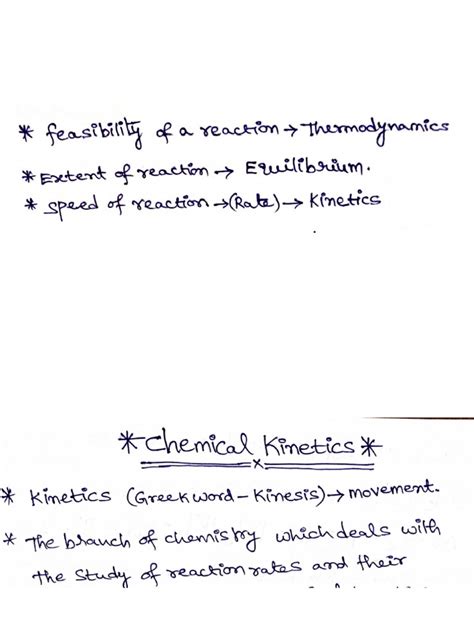 * feasibility of a reaction → Thermodynamics
* Extent of reaction → Equilibrium.
* speed of reaction → (Rate) → Kinetics
* Chemical Kinetics *
* Kinetics (Greek word - Kinesis) → movement.
* The branch of chemistry which deals with
the study of reaction rates and their